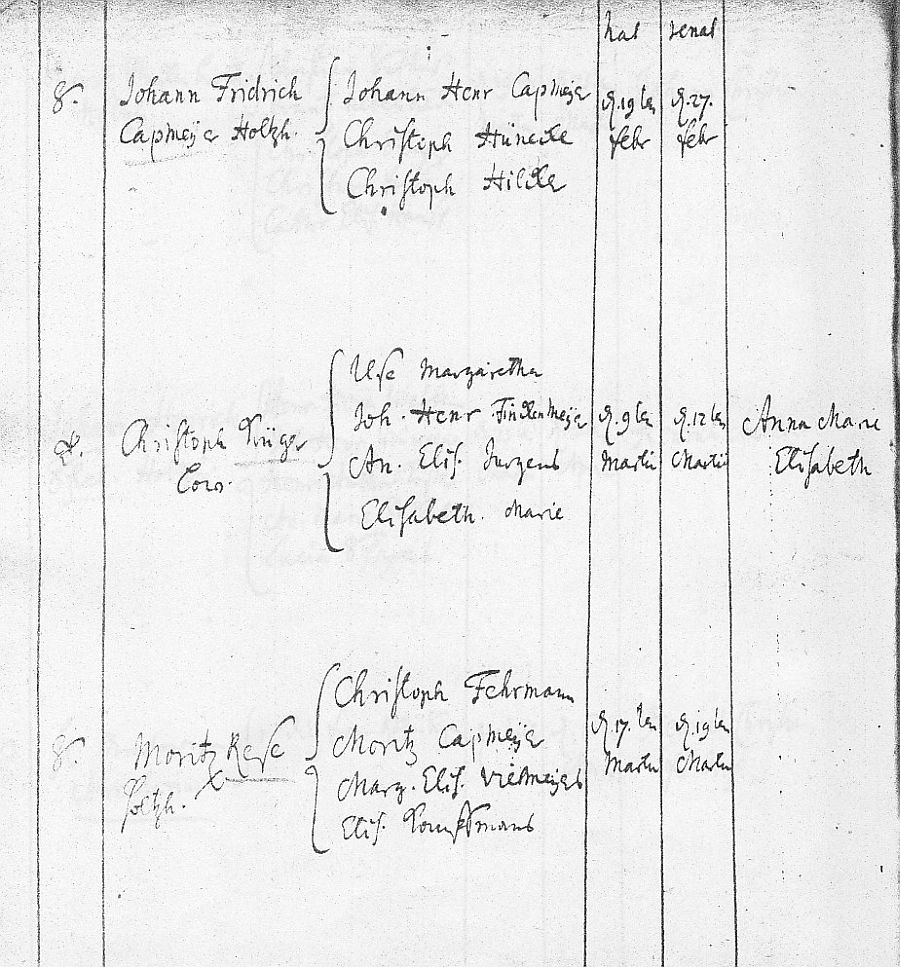 nat renat
8. Johann Fridrich { Johann Henr Capmeyer d. 19 ten d. 27.
Capmeyer Holtzh. Christoph Hünecke febr febr
Christoph Hilcker
Ilse Margaretha
Joh. Henr Finckenmeyer d. 9 ten d. 12 ten Anna Marie
Christoph Krüger { An. Elis. Jurgens Martii Martii Elisabeth
Elisabeth. Marie
Christoph Fehrmann
8. Moritz Rese { Moritz Capmeyer d. 17. ten d. 19 ten
Holtzh. Marg. Elis. Martii Martii
Elis.